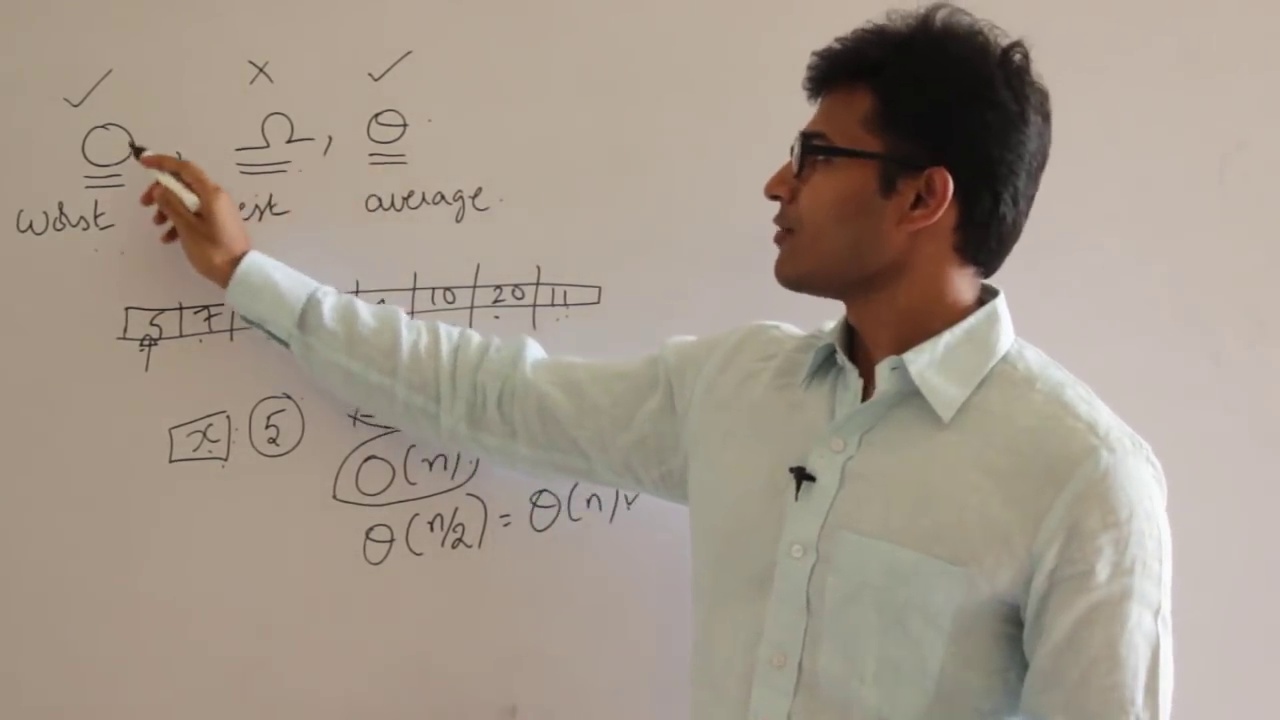 O, Ω, θ
worst average
5 7 10 20 11
x : 5
O(n)
θ(n/2) = θ(n)